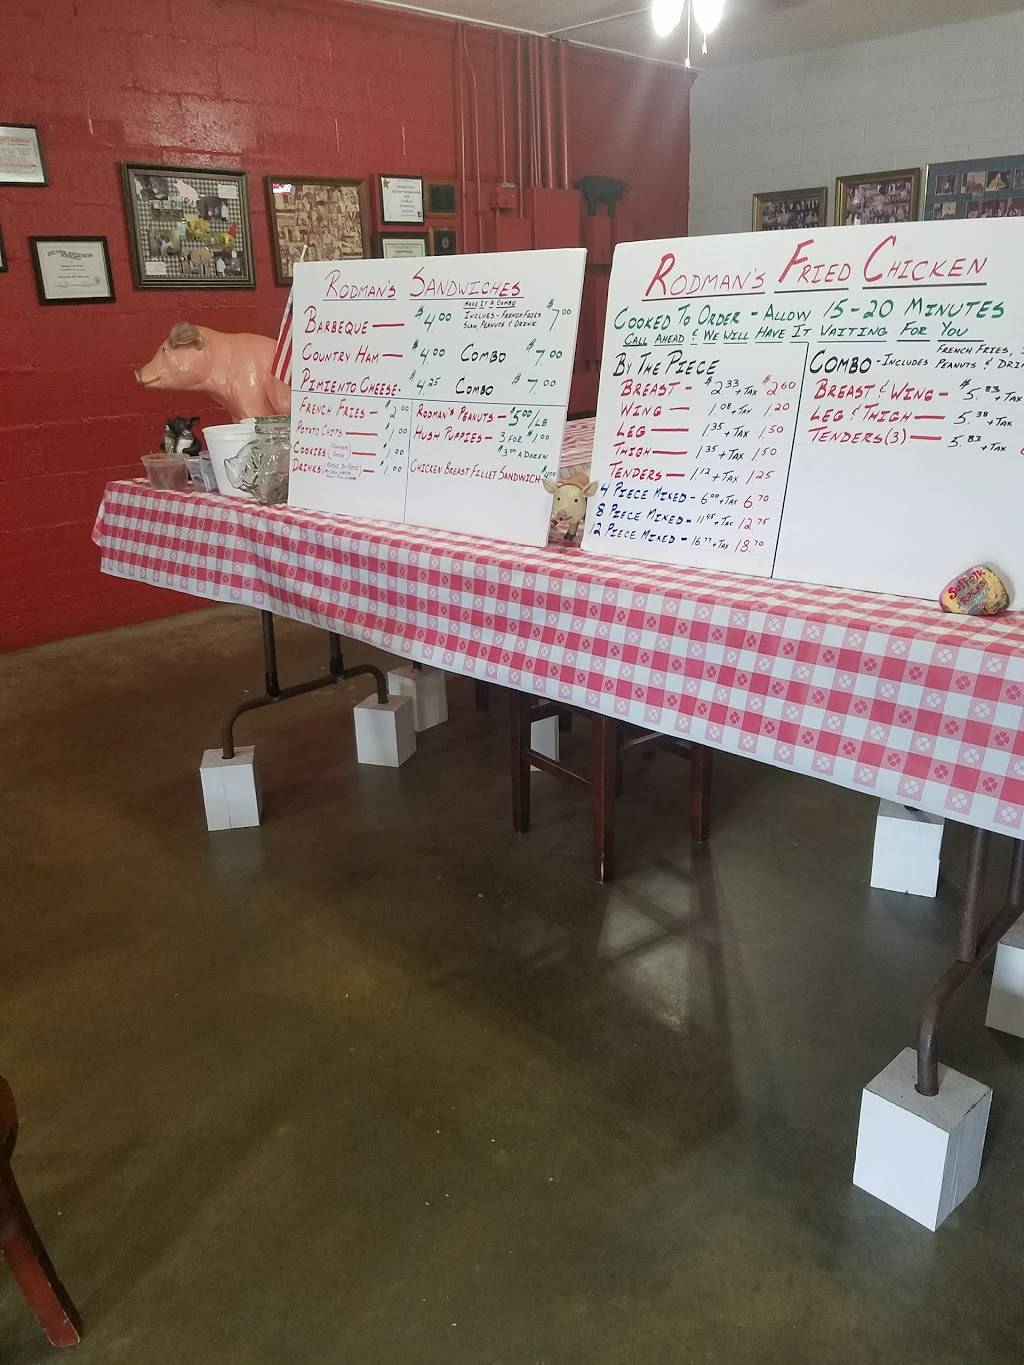 RODMAN'S SANDWICHES
MAKE IT A COMBO
BARBEQUE — $4.00 INCLUES - FRENCH FRIES $7.00
SLAW, PEANUTS & DRINK
COUNTRY HAM — $4.00 COMBO $7.00
PIMIENTO CHEESE - $4.25 COMBO $7.00
FRENCH FRIES — $2.00
POTATO CHIPS — $1.00
COOKIES — $1.00
DRINKS — $1.00
RODMAN'S PEANUTS - $5.00/LB
HUSH PUPPIES - 3 FOR $1.00
$3.00 A DOZEN
CHICKEN BREAST FILLET SANDWICH $4.00
RODMAN'S FRIED CHICKEN
COOKED TO ORDER - ALLOW 15-20 MINUTES
CALL AHEAD & WE WILL HAVE IT WAITING FOR YOU
BY THE PIECE
BREAST - $2.33 + TAX $2.60
WING — 1.08 + TAX 1.20
LEG — 1.35 + TAX 1.50
THIGH — 1.35 + TAX 1.50
TENDERS - 1.12 + TAX 1.25
4 PIECE MIXED - 6.00 + TAX 6.70
8 PIECE MIXED - 11.45 + TAX 12.75
12 PIECE MIXED - 16.77 + TAX 18.70
FRENCH FRIES,
COMBO - INCLUDES PEANUTS & DRIN
BREAST & WING - $5.83 + TAX
LEG & THIGH — 5.38 + TAX
TENDERS (3) — 5.83 + TAX
Suffolk
ROCKS